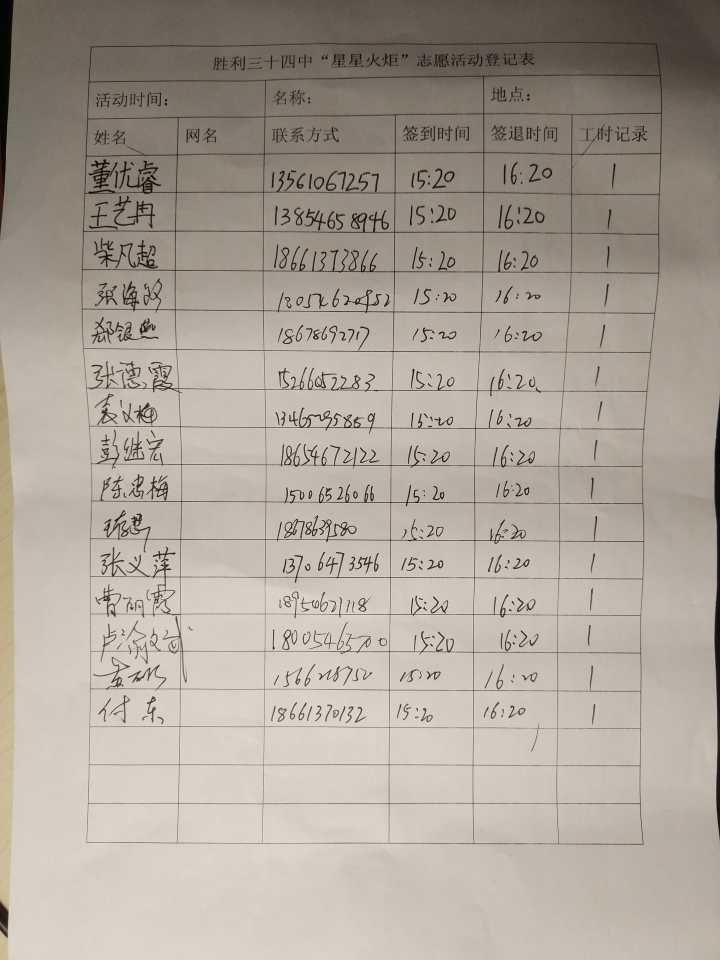 胜利三十四中“星星火炬”志愿活动登记表
活动时间: 名称: 地点:
姓名 网名 联系方式 签到时间 签退时间 工时记录
董优睿 13561067257 15:20 16:20 1
王艺冉 13854658946 15:20 16:20 1
柴凡超 18661373866 15:20 16:20 1
张海 15:20 16:20 1
郑银燕 18678692717 15:20 16:20 1
张德霞 15266052283 15:20 16:20 1
袁义梅 13465295859 15:20 16:20 1
彭继宏 18654672122 15:20 16:20 1
陈忠梅 15006526066 15:20 16:20 1
18678639580 15:20 16:20 1
张义萍 13706473546 15:20 16:20 1
曹丽霞 18954621118 15:20 16:20 1
卢渝 18005465700 15:20 16:20 1
15:20 16:20 1
付东 18661370132 15:20 16:20 1